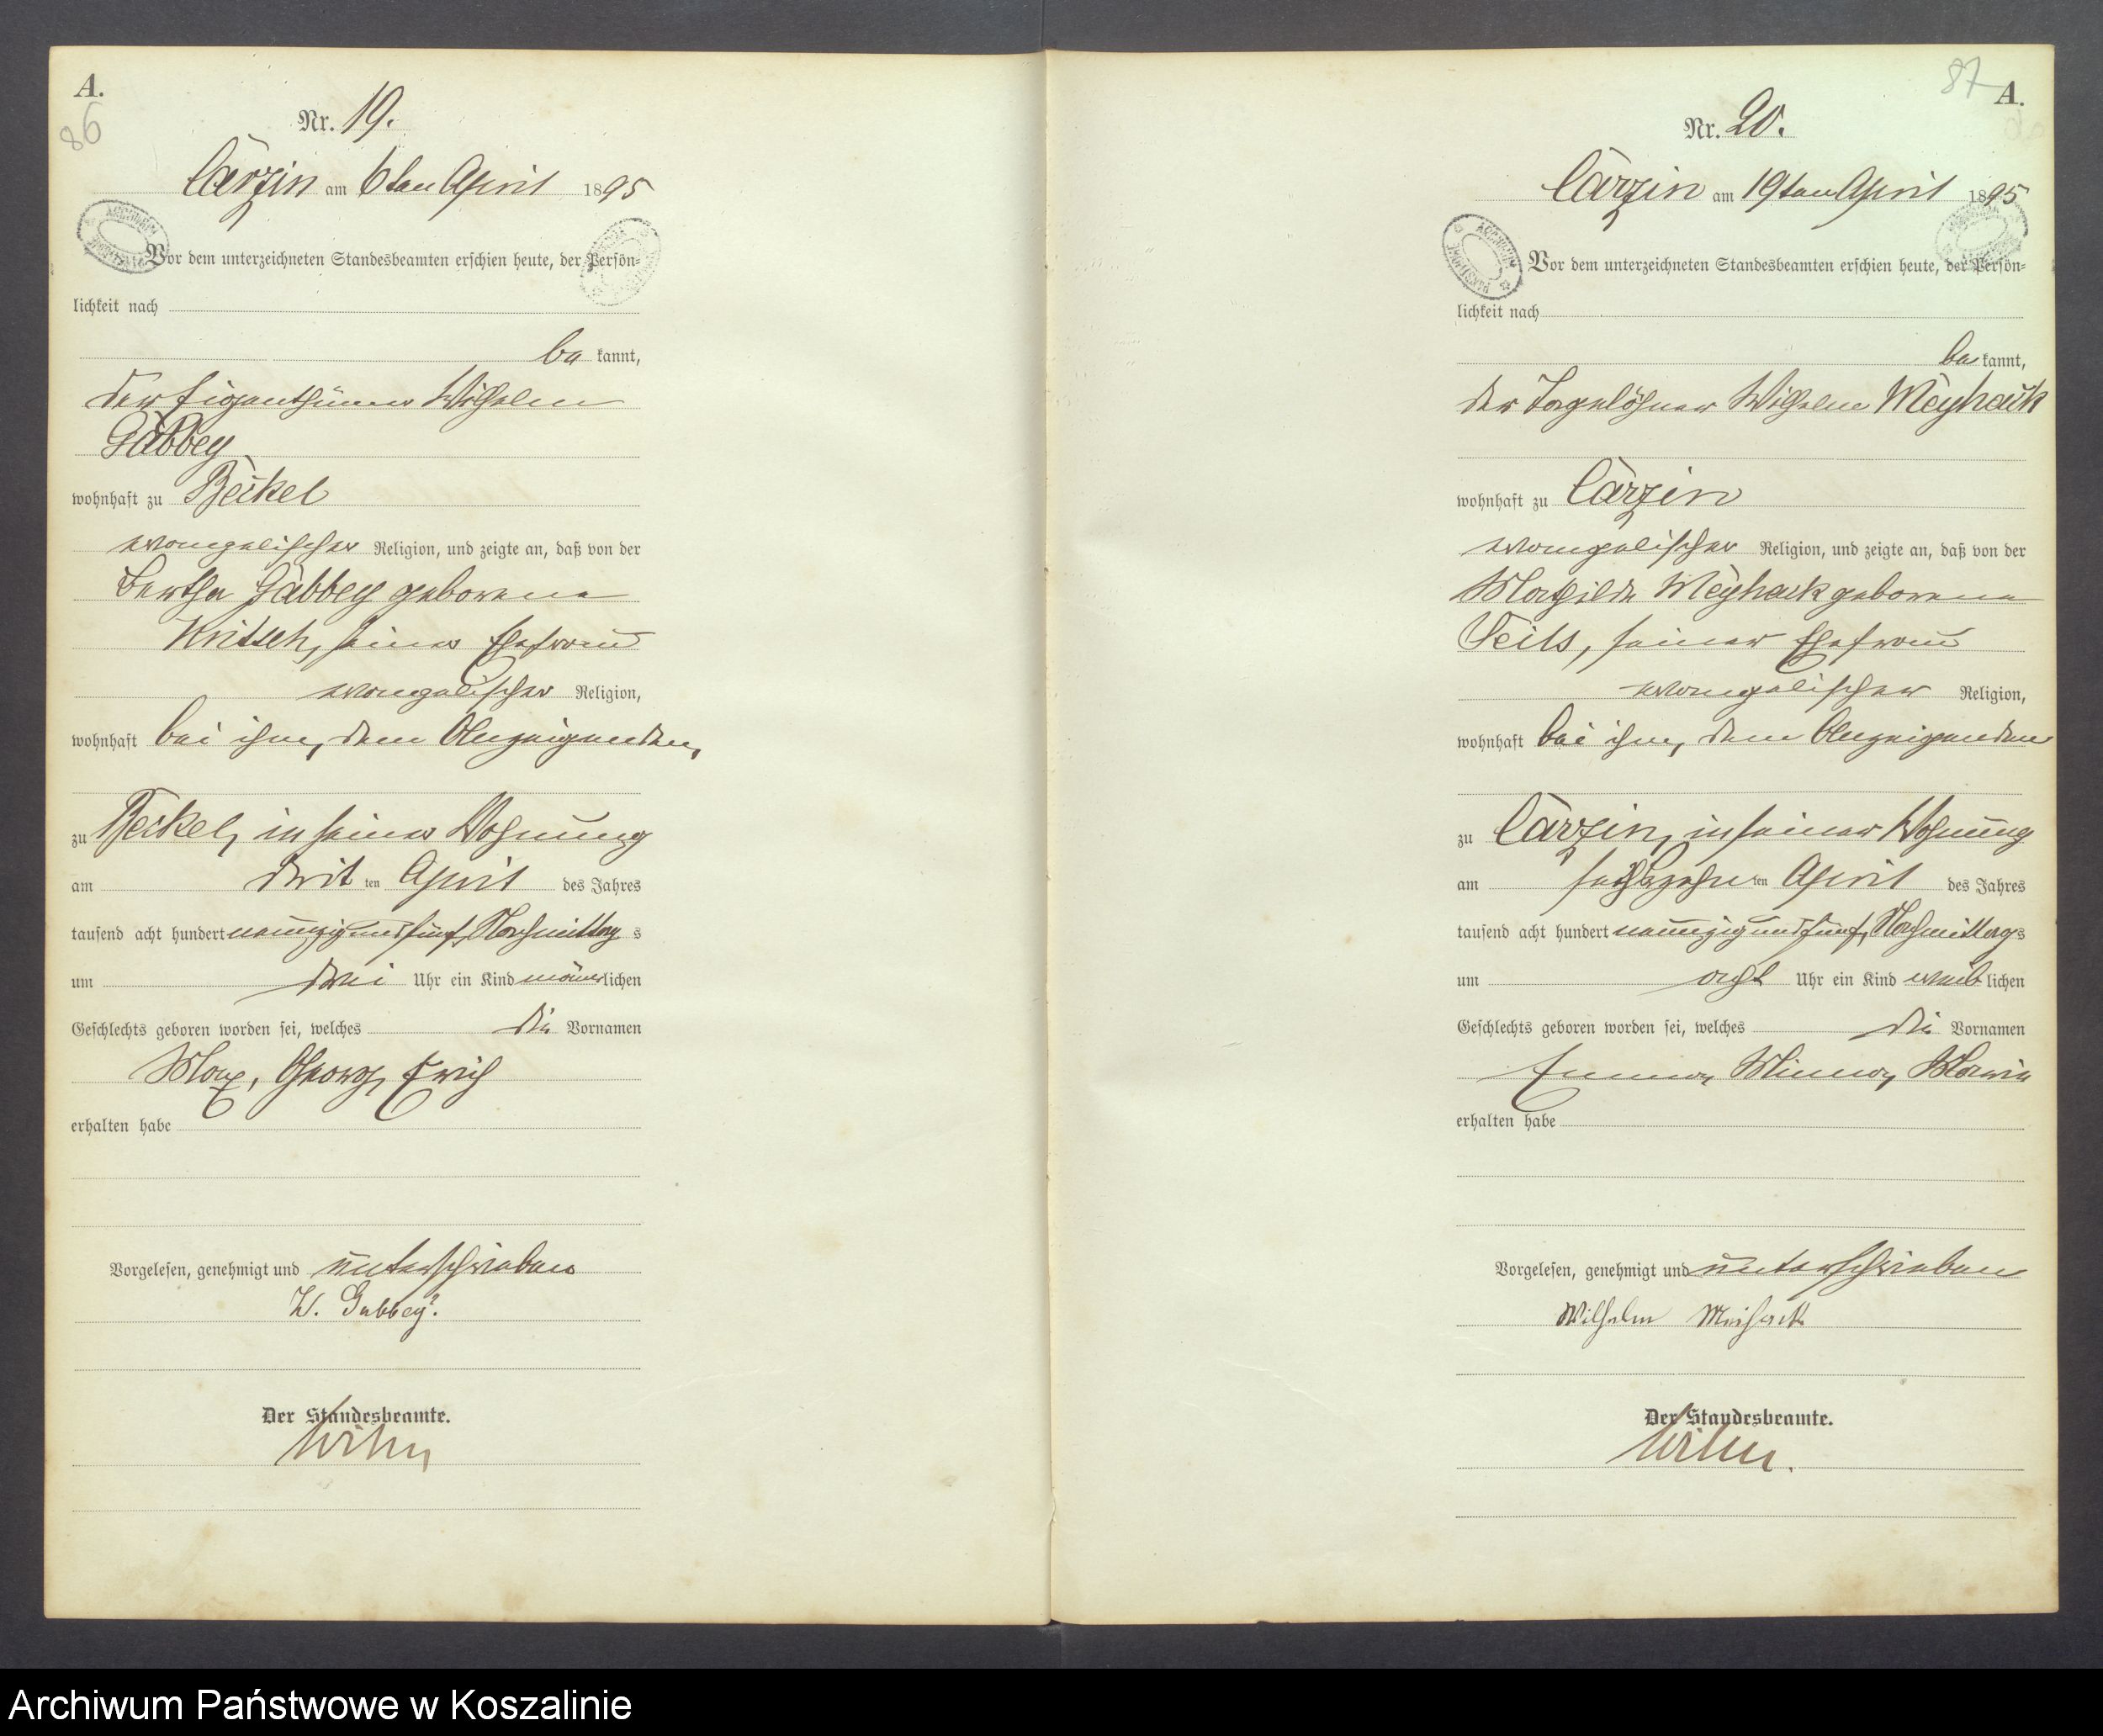 A.
86
Nr. 19.
Carzin am 6ten April 1895
Vor dem unterzeichneten Standesbeamten erschien heute, der Persön-
lichkeit nach
be kannt,
der Eigenthümer Wilhelm
Gabbey
wohnhaft zu Beckel
evangelischer Religion, und zeigte an, daß von der
Bertha Gabbey geborene
Kritsch, seiner Ehefrau
evangelischer Religion,
wohnhaft bei ihm, dem Anzeigenden,
zu Beckel, in seiner Wohnung
am dritten April des Jahres
tausend acht hundert neunzig und fünf, Nachmittags
um drei Uhr ein Kind männlichen
Geschlechts geboren worden sei, welches die Vornamen
Max, Georg, Erich
erhalten habe
Vorgelesen, genehmigt und unterschrieben
W. Gabbey.
Der Standesbeamte.
87
A.
Nr. 20.
Carzin am 19ten April 1895
Vor dem unterzeichneten Standesbeamten erschien heute, der Persön-
lichkeit nach
be kannt,
der Tagelöhner Wilhelm Meyhack
wohnhaft zu Carzin
evangelischer Religion, und zeigte an, daß von der
Mathilde Meyhack geborene
Feils, seiner Ehefrau
evangelischer Religion,
wohnhaft bei ihm, dem Anzeigenden
zu Carzin, in seiner Wohnung
am sechszehnten April des Jahres
tausend acht hundert neunzig und fünf, Nachmittags
um acht Uhr ein Kind weiblichen
Geschlechts geboren worden sei, welches die Vornamen
Emma, Minna, Marie
erhalten habe
Vorgelesen, genehmigt und unterschrieben
Wilhelm Meihack
Der Standesbeamte.
Archiwum Państwowe w Koszalinie